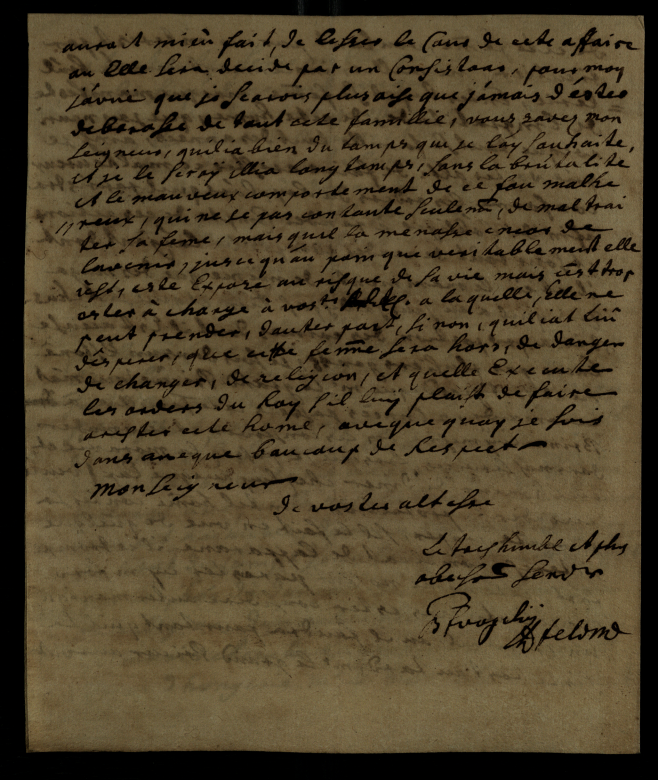 aurait mieŭ fait, de lesser le Cour de cete affaire
au Elle sera decide par un Consistoar, pour moy
j'avoue que je serois plus aise que jamais d'ester
debarasse de tout cete famillie, vous savez mon
seigneur, quil ia bien du tamps que je lay souhaite,
et je le seroÿ illia long tamps, sans la brutalite
et le mauveux comportement de ce fou malhe
reux, qui ne se pas contante seulem̃t, de mal trai
ter sa feme, mais quil la menasse encor de
lavenir, jusequ'au poin que veritablement elle
est, este Expoze au risque de sa vie mais c'est trop
oster à charge à vost a laquelle, Elle ne
peut prender, dauter part, si non, quil iat
desperer, que cette fem̃e sera hors, de danger
de changer, de religion, et quelle Execute
les orders du Roy sil luy plaist de faire
arester cete home, aveque quoy je suis
dans aveque baucoup de Respect
Monseigneur
de voster altesse
Le tres humble et plus
obeiss serv